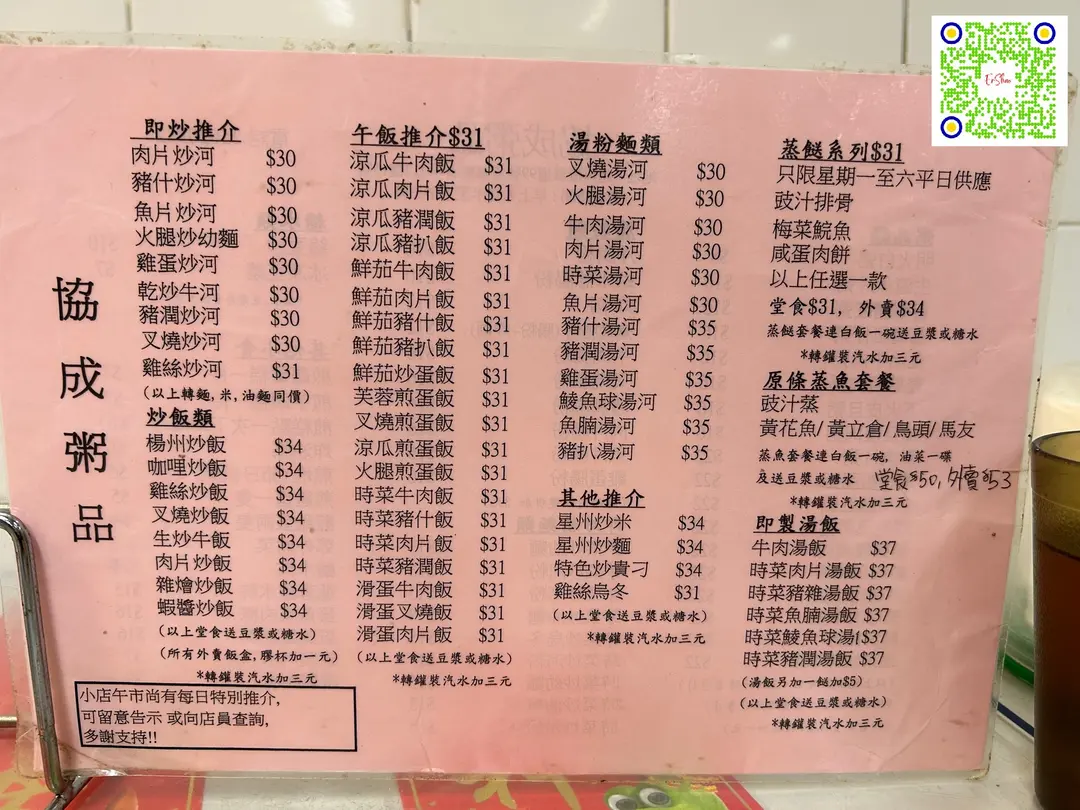 協成粥品
即炒推介
肉片炒河 $30
豬什炒河 $30
魚片炒河 $30
火腿炒幼麵 $30
雞蛋炒河 $30
乾炒牛河 $30
豬潤炒河 $30
叉燒炒河 $30
雞絲炒河 $31
(以上轉麵, 米, 油麵同價)
炒飯類
楊州炒飯 $34
咖哩炒飯 $34
雞絲炒飯 $34
叉燒炒飯 $34
生炒牛飯 $34
肉片炒飯 $34
雜燴炒飯 $34
蝦醬炒飯 $34
(以上堂食送豆漿或糖水)
(所有外賣飯盒, 膠杯加一元)
*轉罐裝汽水加三元
小店午市尚有每日特別推介,
可留意告示 或向店員查詢,
多謝支持!!
午飯推介$31
涼瓜牛肉飯 $31
涼瓜肉片飯 $31
涼瓜豬潤飯 $31
涼瓜豬扒飯 $31
鮮茄牛肉飯 $31
鮮茄肉片飯 $31
鮮茄豬什飯 $31
鮮茄豬扒飯 $31
鮮茄炒蛋飯 $31
芙蓉煎蛋飯 $31
叉燒煎蛋飯 $31
涼瓜煎蛋飯 $31
火腿煎蛋飯 $31
時菜牛肉飯 $31
時菜豬什飯 $31
時菜肉片飯 $31
時菜豬潤飯 $31
滑蛋牛肉飯 $31
滑蛋叉燒飯 $31
滑蛋肉片飯 $31
(以上堂食送豆漿或糖水)
*轉罐裝汽水加三元
湯粉麵類
叉燒湯河 $30
火腿湯河 $30
牛肉湯河 $30
肉片湯河 $30
時菜湯河 $30
魚片湯河 $30
豬什湯河 $35
豬潤湯河 $35
雞蛋湯河 $35
鯪魚球湯河 $35
魚腩湯河 $35
豬扒湯河 $35
其他推介
星州炒米 $34
星州炒麵 $34
特色炒貴刁 $34
雞絲烏冬 $31
(以上堂食送豆漿或糖水)
*轉罐裝汽水加三元
蒸餸系列$31
只限星期一至六平日供應
豉汁排骨
梅菜鯇魚
咸蛋肉餅
以上任選一款
堂食$31, 外賣$34
蒸餸套餐連白飯一碗送豆漿或糖水
*轉罐裝汽水加三元
原條蒸魚套餐
豉汁蒸
黃花魚/ 黃立倉/ 鳥頭/ 馬友
蒸魚套餐連白飯一碗, 油菜一碟
及送豆漿或糖水 堂食$50, 外賣$53
*轉罐裝汽水加三元
即製湯飯
牛肉湯飯 $37
時菜肉片湯飯 $37
時菜豬雜湯飯 $37
時菜魚腩湯飯 $37
時菜鯪魚球湯 $37
時菜豬潤湯飯 $37
(湯飯另加一餸加$5)
(以上堂食送豆漿或糖水)
*轉罐裝汽水加三元